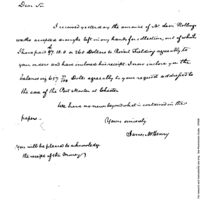 Dear Sir
I received yesterday the amount of Mr Levi Hollings
worth's accepted draught left in my hands for collection, out of which
I have paid 97.10.0 or 260 Dollars to Daniel Fielding agreeably to
your orders and have inclosed his receipt. I now inclose you the
balance by 657 Dols. agreeably to your request addressed to
the care of the Post Master at Chester
We have no news beyond what is contained in the
papers.
Yours sincerely
James McHenry
You will be pleased to acknowledge
the receipt of the money